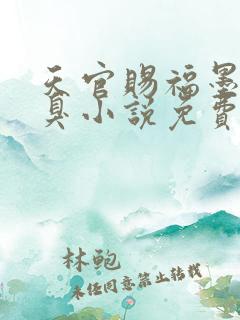 天官赐福墨
真小说免费
林鲍
未经同意禁止转载